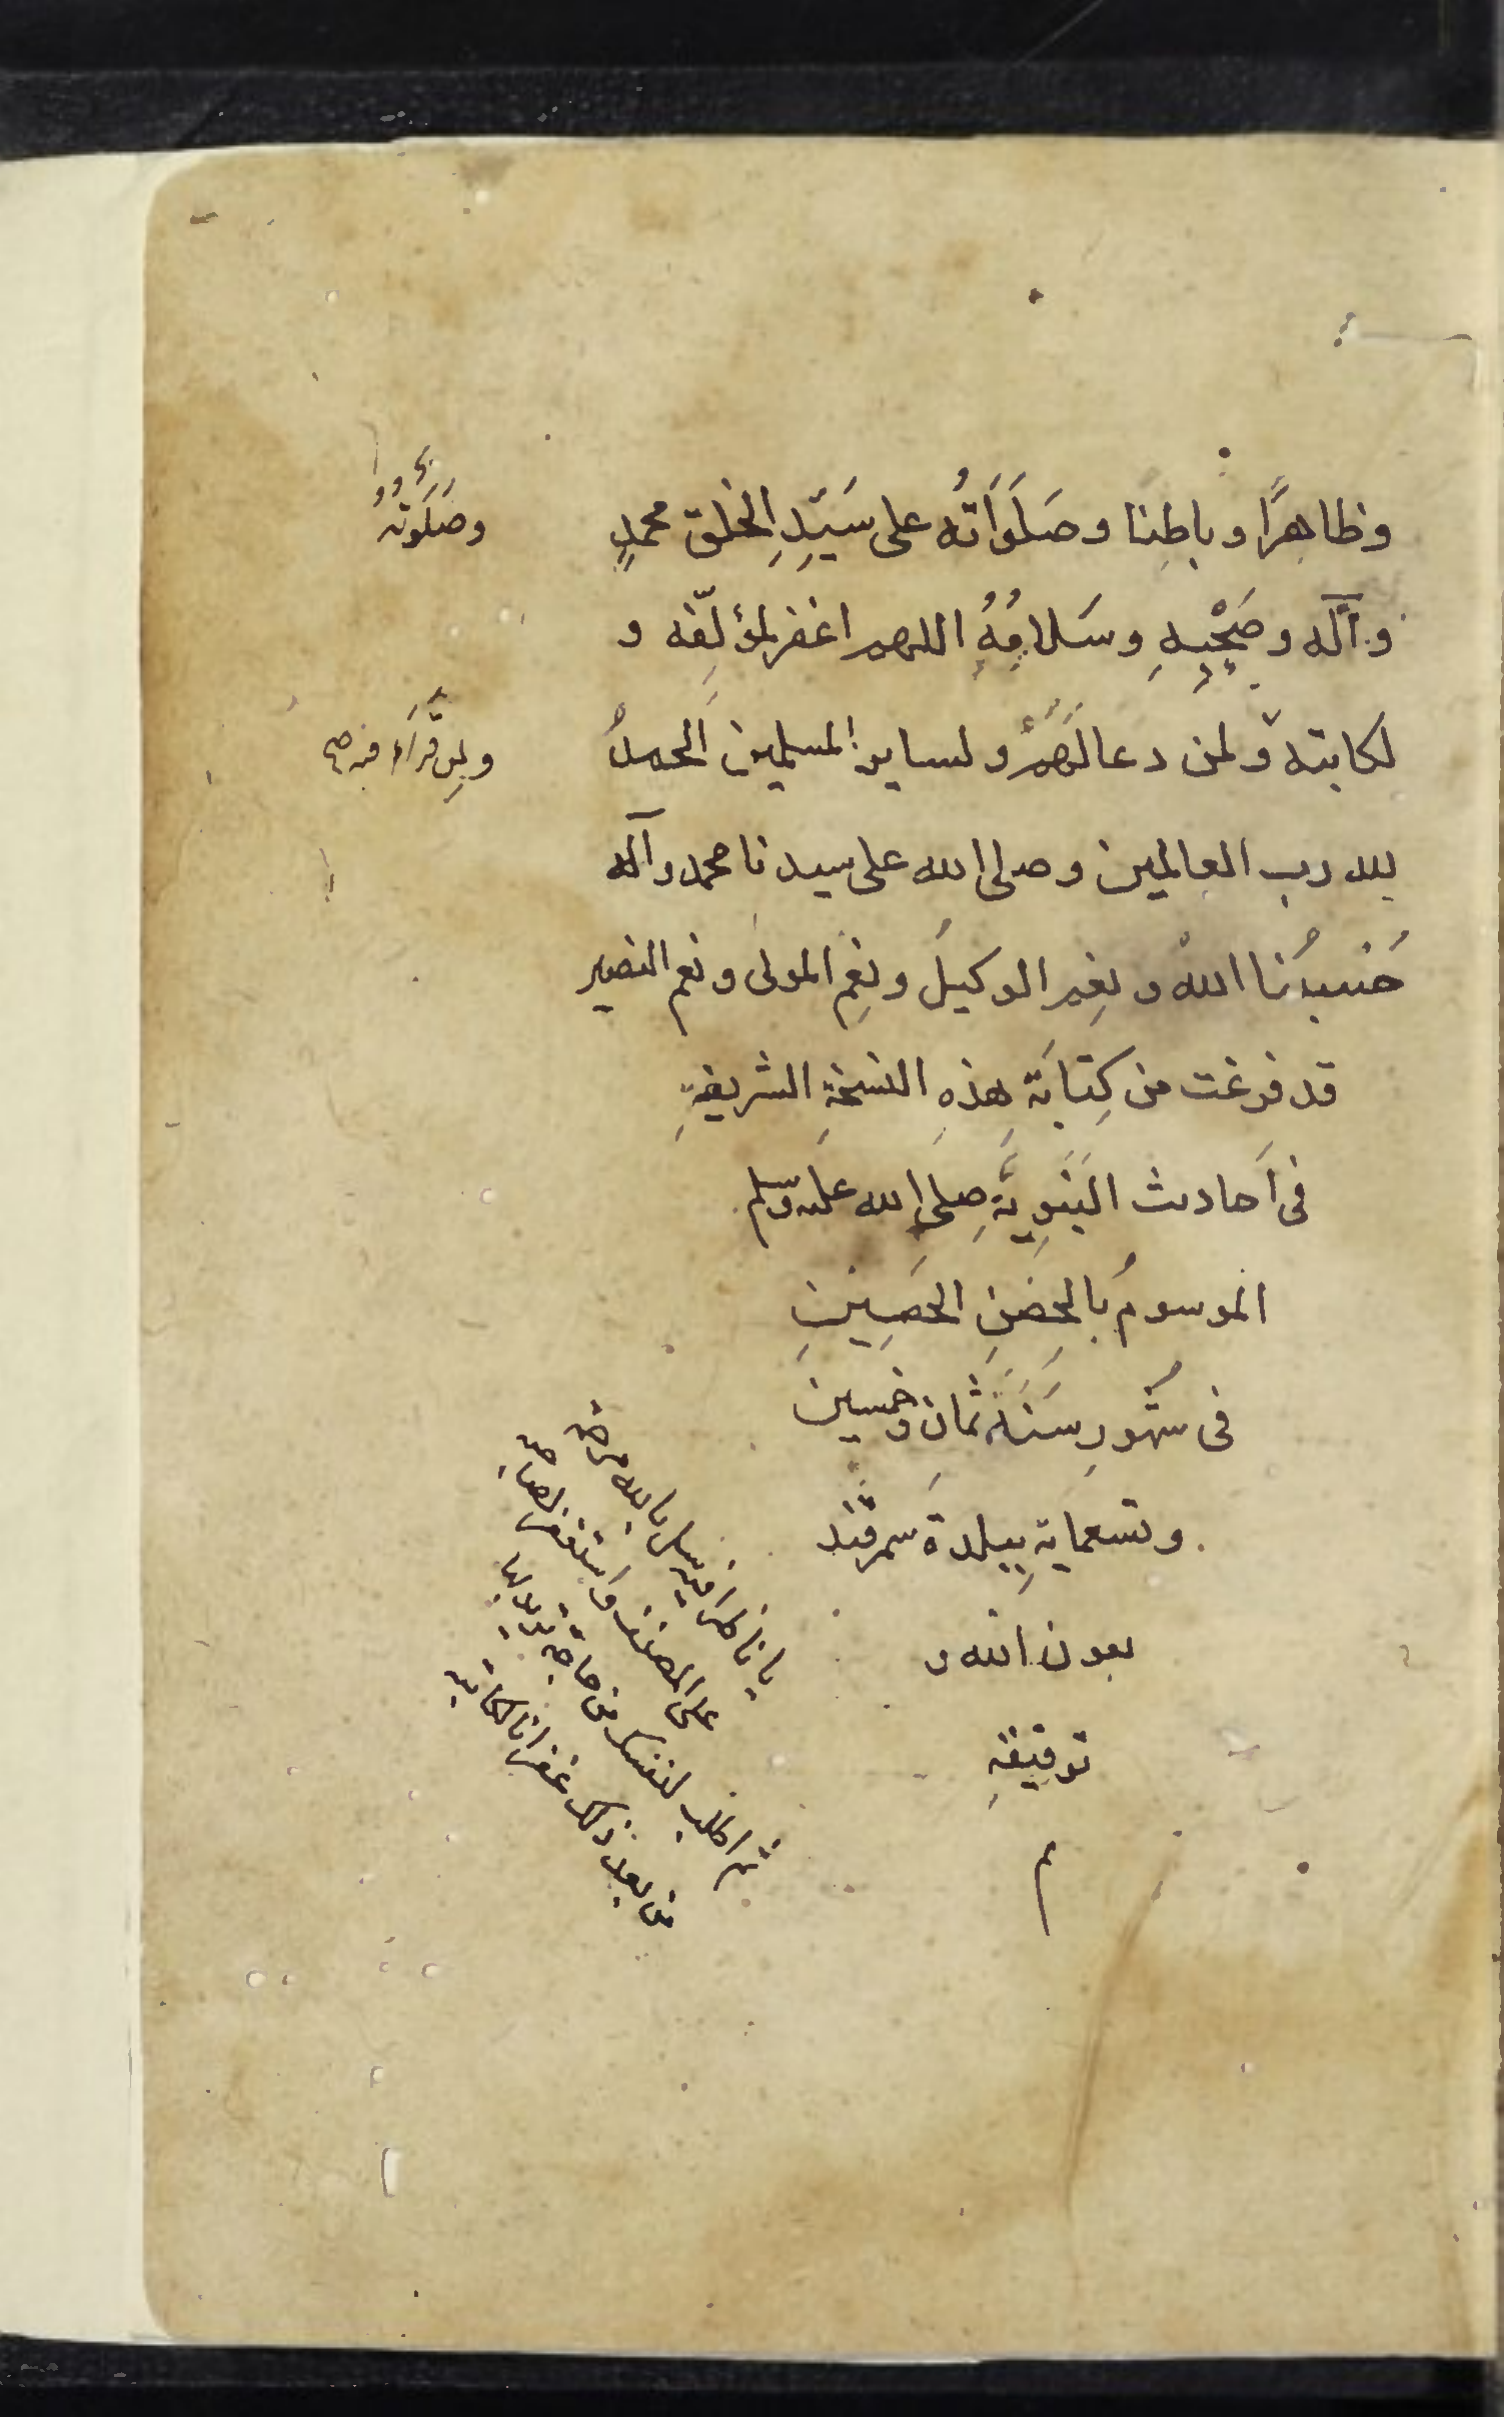 وظاهِرًا وباطِنًا وصَلَوَاتُه على سَيِّدِ الخلق محمدٍ
وصَلَوتُهُ
وآلِه وصَحْبِهِ وسَلامُهُ اللهم اغفر لمؤلِّفه و
لكاتبه ولمن دعا لَهُمْ ولساير المسلمين الحمدُ
ولمِن قَرَأَه فيه صح
لله رب العالمين وصلى الله على سيدنا محمد وآله
حَسْبُنا اللهُ ونِعم الوكيلُ ونِعم المولى ونعم النصير
قد فرغت من كِتابَةِ هذهِ النسخةِ الشريفةِ
فى اَحاديث النَبَوِيَّةِ صلى الله عليه وسلم
الموسومُ بالحِصْنِ الحَصِينِ
فى شهُورِ سَنَةَ ثمان وخمسين
وتسعمايةِ ببلدة سمرقند
بعون الله و
توفيقهِ
م
يا ناظرا فيه سل بالله مرحمة
على المصنف واستغفر لصاحبه
ثم اطلب لنفسك من حاجة تريد بها
من بعد ذلك غفرانا لكاتبه